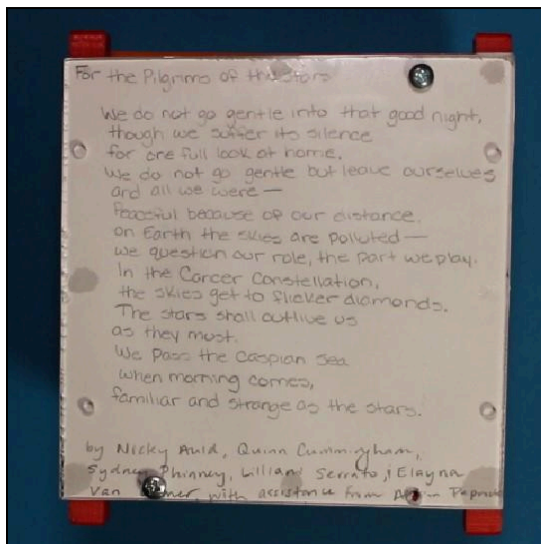 For the Pilgrims of the Stars
We do not go gentle into that good night,
though we suffer its silence
for one full look at home.
We do not go gentle but leave ourselves
and all we were—
Peaceful because of our distance.
on Earth the skies are polluted—
we question our role, the part we play.
In the Cancer Constellation,
the skies get to flicker diamonds.
The stars shall outlive us
as they must.
We pass the Caspian Sea
when morning comes,
familiar and strange as the stars.
by Nicky Auld, Quinn Cunningham,
Sydney Phinney, Lilliana Serrato, Elayna
Van with assistance from